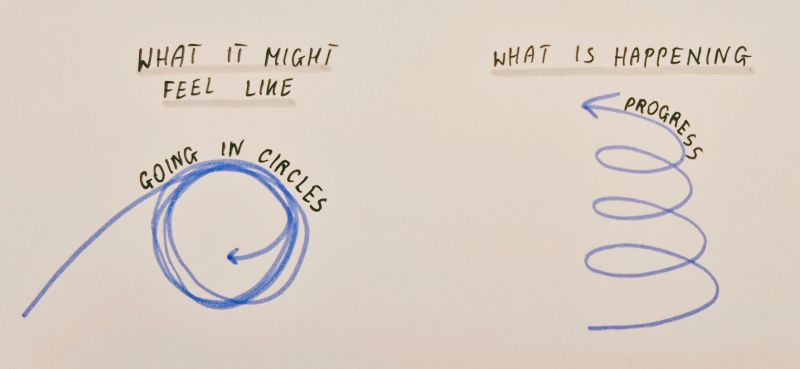 WHAT IT MIGHT
FEEL LIKE
GOING IN CIRCLES
WHAT IS HAPPENING
PROGRESS